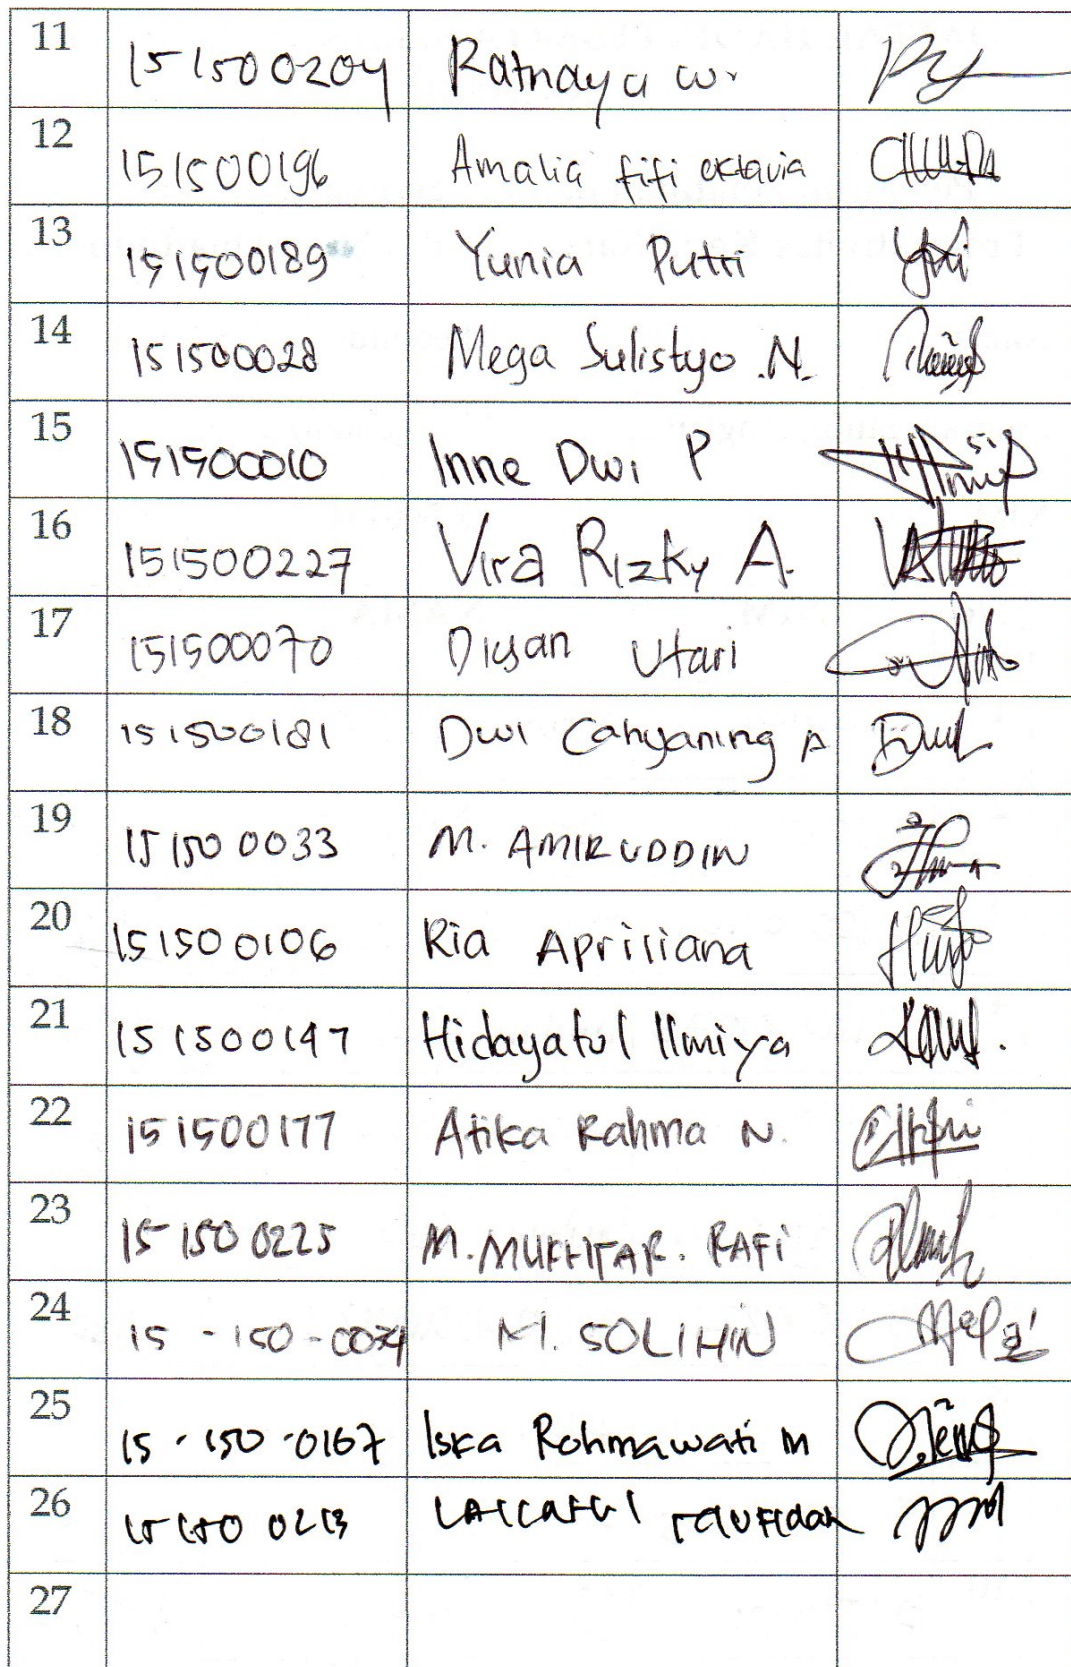 11 151500204 Ratnaya w.
12 151500196 Amalia fifi oktavia
13 151500189 Yunia Putri
14 151500028 Mega Sulistyo .N.
15 151500010 Inne Dwi P
16 151500227 Vira Rizky A.
17 151500070 Utari
18 151500181 Dwi Cahyaning A
19 151500033 M. AMIRUDDIN
20 151500106 Ria Apriliana
21 151500147 Hidayatul Ilmiya
22 151500177 Atika Rahma N.
23 151500225 M. MUKHTAR. RAFi
24 M. SOLIHIN
25 15-150-0167 Iska Rohmawati M
26
27